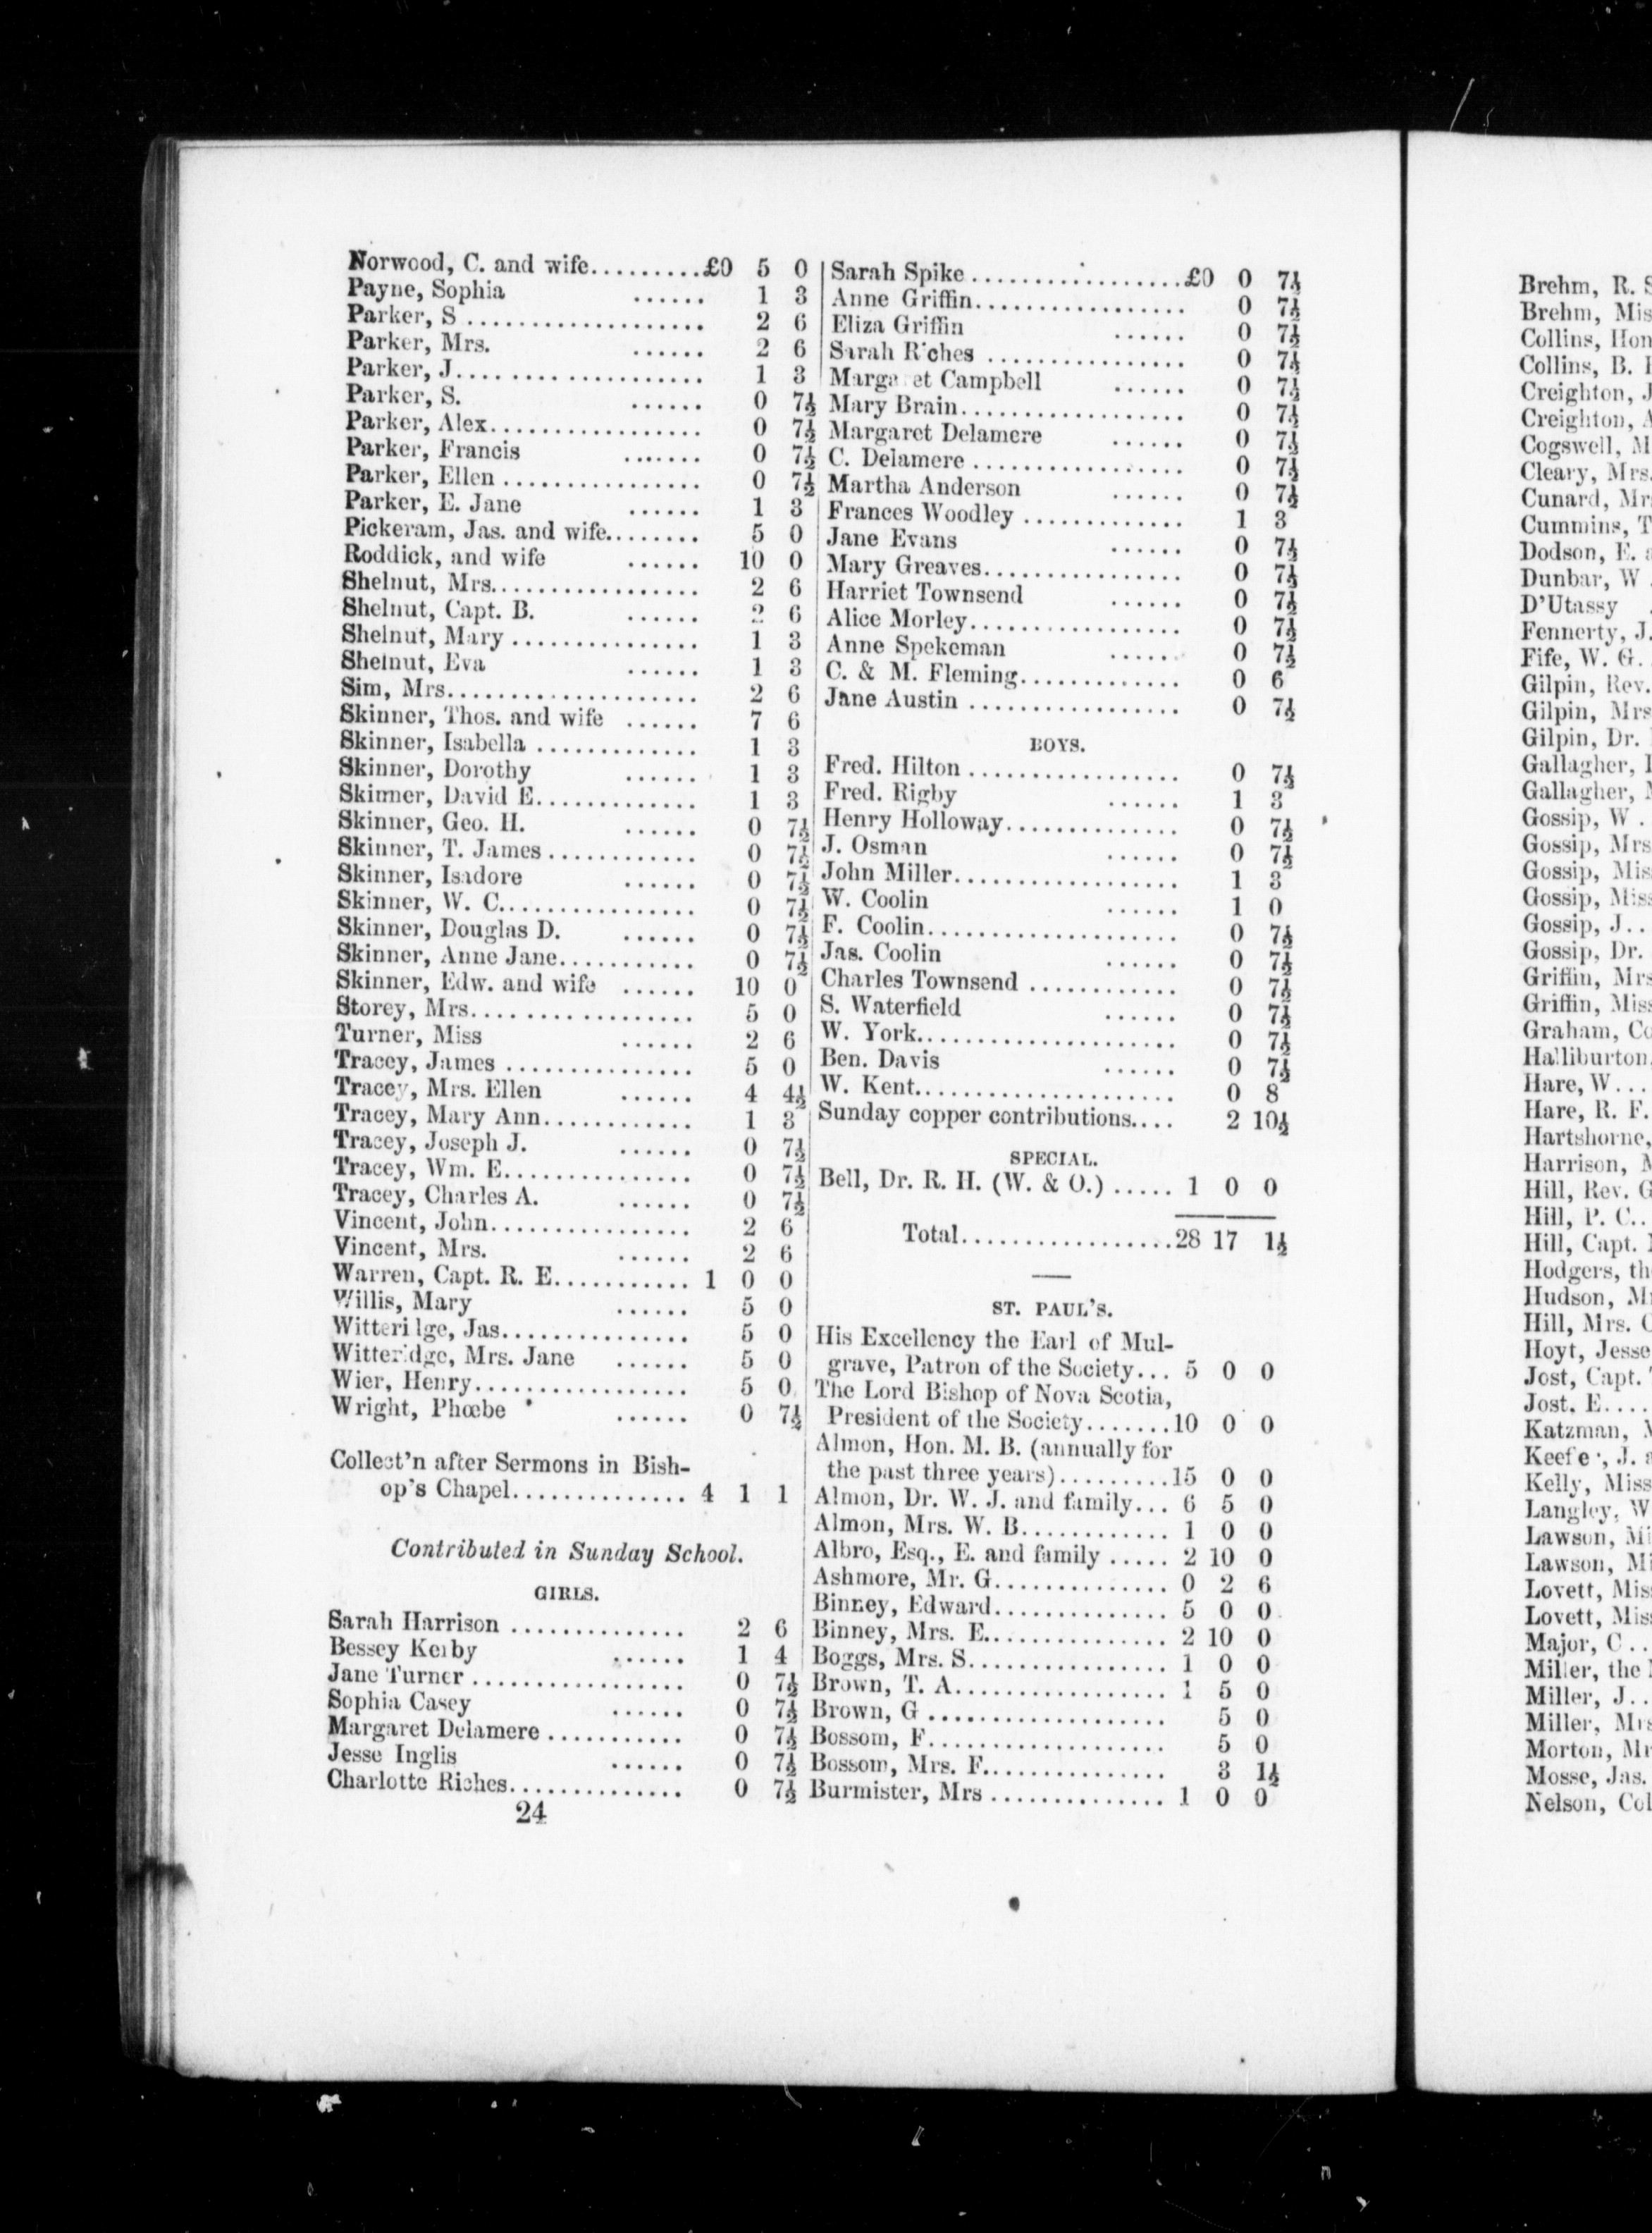 Norwood, C. and wife.........£0 5 0
Payne, Sophia ...... 1 3
Parker, S ................... 2 6
Parker, Mrs. ...... 2 6
Parker, J.................... 1 3
Parker, S. ...... 0 7½
Parker, Alex................. 0 7½
Parker, Francis ....... 0 7½
Parker, Ellen ................ 0 7½
Parker, E. Jane ...... 1 3
Pickeram, Jas. and wife........ 5 0
Roddick, and wife ...... 10 0
Shelnut, Mrs................. 2 6
Shelnut, Capt. B. ...... 2 6
Shelnut, Mary ............... 1 3
Shelnut, Eva ...... 1 3
Sim, Mrs..................... 2 6
Skinner, Thos. and wife ...... 7 6
Skinner, Isabella ............. 1 3
Skinner, Dorothy ...... 1 3
Skinner, David E............. 1 3
Skinner, Geo. H. ...... 0 7½
Skinner, T. James ............ 0 7½
Skinner, Isadore ...... 0 7½
Skinner, W. C................ 0 7½
Skinner, Douglas D. ...... 0 7½
Skinner, Anne Jane........... 0 7½
Skinner, Edw. and wife ...... 10 0
Storey, Mrs.................. 5 0
Turner, Miss ...... 2 6
Tracey, James ................ 5 0
Tracey, Mrs. Ellen ...... 4 4½
Tracey, Mary Ann............ 1 3
Tracey, Joseph J. ...... 0 7½
Tracey, Wm. E................ 0 7½
Tracey, Charles A. ...... 0 7½
Vincent, John................. 2 6
Vincent, Mrs. ...... 2 6
Warren, Capt. R. E........... 1 0 0
Willis, Mary ...... 5 0
Witteri ge, Jas................ 5 0
Witteridge, Mrs. Jane ...... 5 0
Wier, Henry.................. 5 0
Wright, Phœbe ...... 0 7½
Collect'n after Sermons in Bish-
op's Chapel............... 4 1 1
Contributed in Sunday School.
GIRLS.
Sarah Harrison .............. 2 6
Bessey Kerby ...... 1 4
Jane Turner ................. 0 7½
Sophia Casey ...... 0 7½
Margaret Delamere ........... 0 7½
Jesse Inglis ...... 0 7½
Charlotte Riches.............. 0 7½
24
Sarah Spike ..................£0 0 7½
Anne Griffin................. 0 7½
Eliza Griffin ...... 0 7½
Sarah R'ches ................ 0 7½
Marga et Campbell ...... 0 7½
Mary Brain.................. 0 7½
Margaret Delamere ...... 0 7½
C. Delamere ................. 0 7½
Martha Anderson ...... 0 7½
Frances Woodley ............. 1 3
Jane Evans ...... 0 7½
Mary Greaves................ 0 7½
Harriet Townsend ...... 0 7½
Alice Morley................. 0 7½
Anne Spekeman ..... 0 7½
C. & M. Fleming............. 0 6
Jane Austin ................. 0 7½
BOYS.
Fred. Hilton ................. 0 7½
Fred. Rigby ...... 1 3
Henry Holloway.............. 0 7½
J. Osman ...... 0 7½
John Miller.................. 1 3
W. Coolin ...... 1 0
F. Coolin.................... 0 7½
Jas. Coolin ...... 0 7½
Charles Townsend ............ 0 7½
S. Waterfield ...... 0 7½
W. York..................... 0 7½
Ben. Davis ...... 0 7½
W. Kent..................... 0 8
Sunday copper contributions.... 2 10½
SPECIAL.
Bell, Dr. R. H. (W. & O.) ..... 1 0 0
Total.................28 17 1½
ST. PAUL'S.
His Excellency the Earl of Mul-
grave, Patron of the Society... 5 0 0
The Lord Bishop of Nova Scotia,
President of the Society.......10 0 0
Almon, Hon. M. B. (annually for
the past three years).........15 0 0
Almon, Dr. W. J. and family... 6 5 0
Almon, Mrs. W. B............ 1 0 0
Albro, Esq., E. and family ..... 2 10 0
Ashmore, Mr. G.............. 0 2 6
Binney, Edward.............. 5 0 0
Binney, Mrs. E............... 2 10 0
Boggs, Mrs. S................ 1 0 0
Brown, T. A................. 1 5 0
Brown, G ................... 5 0
Bossom, F................... 5 0
Bossom, Mrs. F.............. 3 1½
Burmister, Mrs .............. 1 0 0
Brehm, R.
Brehm, Mis
Collins, Hon
Collins, B.
Creighton, J
Creighton,
Cogswell, M
Cleary, Mrs.
Cunard, Mr
Cummins, T
Dodson, E.
Dunbar, W
D'Utassy
Fennerty, J.
Fife, W. G.
Gilpin, Rev.
Gilpin, Mrs
Gilpin, Dr.
Gallagher,
Gallagher,
Gossip, W .
Gossip, Mrs
Gossip, Mis
Gossip, Miss
Gossip, J..
Gossip, Dr.
Griffin, Mrs
Griffin, Miss
Graham, Co
Halliburton,
Hare, W...
Hare, R. F.
Hartshorne,
Harrison,
Hill, Rev. G
Hill, P. C..
Hill, Capt.
Hodgers, th
Hudson, M
Hill, Mrs.
Hoyt, Jesse
Jost, Capt.
Jost, E....
Katzman,
Keefe , J. a
Kelly, Miss
Langley, W
Lawson, Mi
Lawson, Mi
Lovett, Mis
Lovett, Mis
Major, C ..
Miller, the
Miller, J..
Miller, Mrs
Morton, Mr
Mosse, Jas.
Nelson, Col